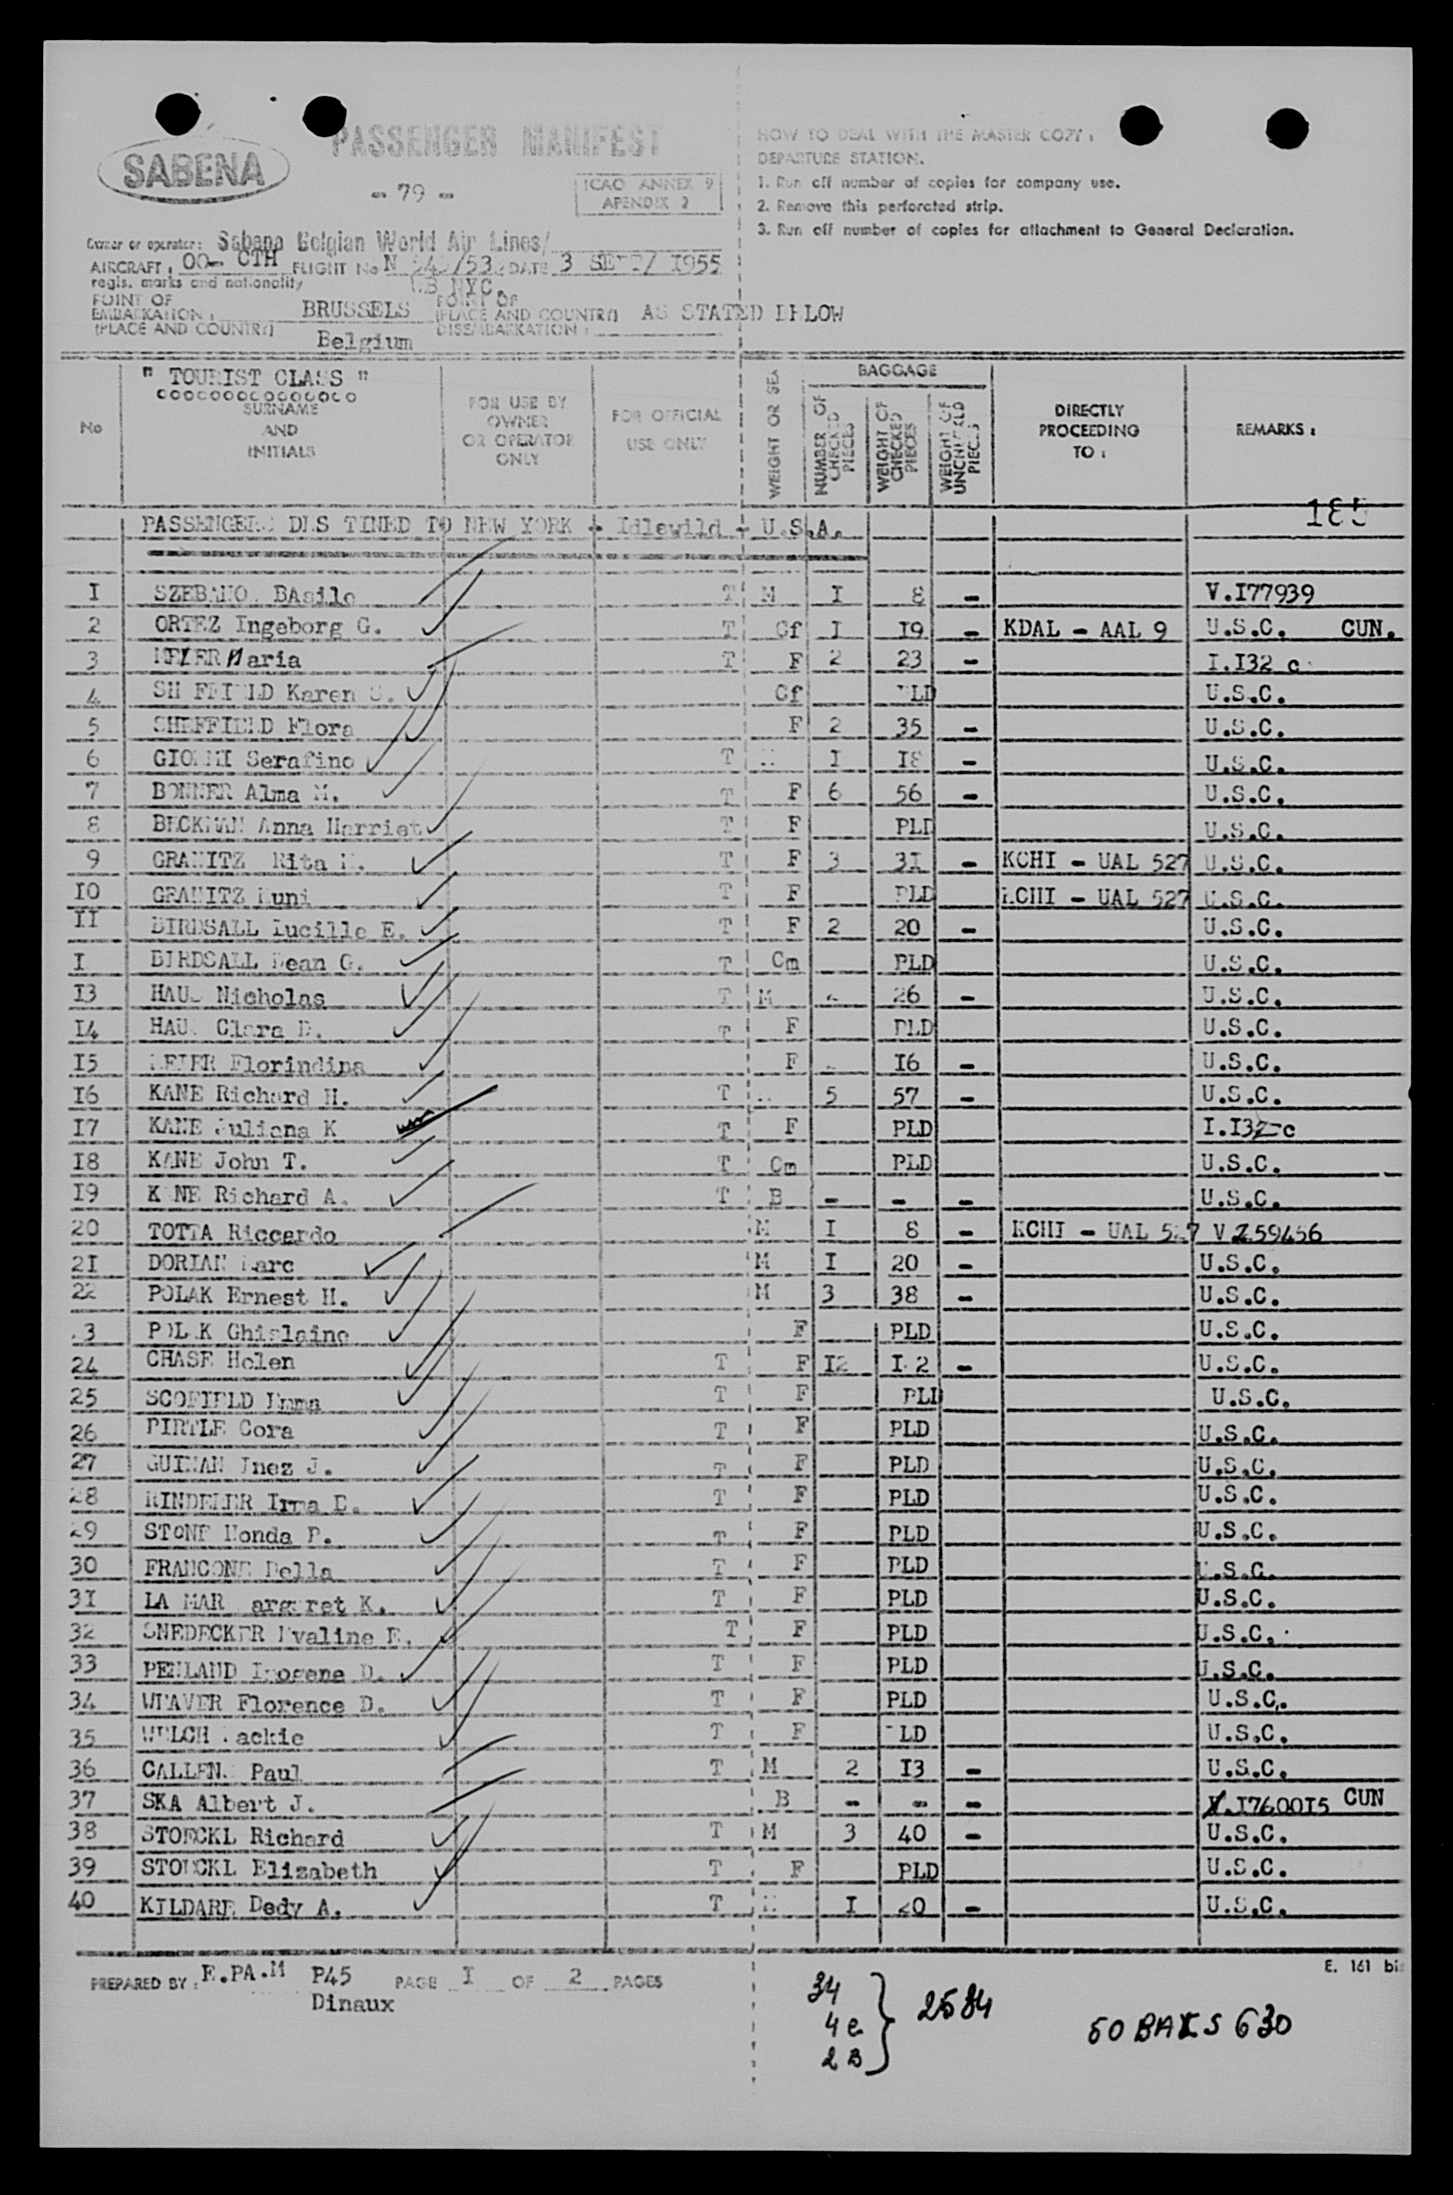 PASSENGER MANIFEST
SABENA
- 79 -
ICAO ANNEX 9
APENDIX 2
HOW TO DEAL WITH THE MASTER COPY :
DEPARTURE STATION.
1. Run off number of copies for company use.
2. Remove this perforated strip.
3. Run off number of copies for attachment to General Declaration.
Owner or operator: Sabena Belgian World Air Lines/
AIRCRAFT : OO- CTH FLIGHT No N DATE 3 SEPT/ 1955
regis. marks and nationality NYC.
POINT OF EMBARKATION : BRUSSELS POINT OF
(PLACE AND COUNTRY) Belgium (PLACE AND COUNTRY) DISSEMBARKATION : AS STATED BELOW
" TOURIST CLASS "
No SURNAME AND INITIALS FOR USE BY OWNER OR OPERATOR ONLY FOR OFFICIAL USE ONLY WEIGHT OR SEX BAGGAGE NUMBER OF CHECKED PIECES WEIGHT OF CHECKED PIECES WEIGHT OF UNCHECKED PIECES DIRECTLY PROCEEDING TO : REMARKS :
185
PASSENGERS DESTINED TO NEW YORK - Idlewild - U.S.A.
I BAsile T M I 8 - V.I77939
2 ORTEZ Ingeborg G. T Cf I I9 - KDAL - AAL 9 U.S.C. CUN.
3 Maria T F 2 23 - I.I32 c
4 SHEFFIELD Karen S. Cf PLD U.S.C.
5 SHEFFIELD Flora F 2 35 - U.S.C.
6 Serafino T M I I8 - U.S.C.
7 BONNER Alma M. T F 6 56 - U.S.C.
8 BECKMAN Anna Harriet T F PLD U.S.C.
9 GRANITZ Rita T F 3 3I - KCHI - UAL 527 U.S.C.
IO GRANITZ T F PLD KCHI - UAL 527 U.S.C.
II BIRDSALL Lucille E. T F 2 20 - U.S.C.
I BIRDSALL Dean G. T Cm PLD U.S.C.
I3 Nicholas T M 26 - U.S.C.
I4 Clara D. T F PLD U.S.C.
I5 Florindina F I6 - U.S.C.
I6 KANE Richard H. T 5 57 - U.S.C.
I7 KANE Juliana K T F PLD I.I32-c
I8 KANE John T. T Cm PLD U.S.C.
I9 KANE Richard A. T B - - - U.S.C.
20 TOTTA Riccardo M I 8 - KCHI - UAL 527 V 259456
2I DORIAN Marc M I 20 - U.S.C.
22 POLAK Ernest H. M 3 38 - U.S.C.
3 POLAK Ghislaine F PLD U.S.C.
24 CHASE Helen T F I2 - U.S.C.
25 SCOFIELD Emma T F PLD U.S.C.
26 PIRTLE Cora T F PLD U.S.C.
27 Inez J. T F PLD U.S.C.
28 Irma T F PLD U.S.C.
29 STONE P. T F PLD U.S.C.
30 FRANCONE Della T F PLD U.S.C.
3I LA MAR Margaret K. T F PLD U.S.C.
32 SNEDECKER Evaline E. T F PLD U.S.C.
33 PENLAND Imogene D. T F PLD U.S.C.
34 WEAVER Florence D. T F PLD U.S.C.
35 WELCH Jackie T F PLD U.S.C.
36 Paul T M 2 I3 - U.S.C.
37 SKA Albert J. B - - - V.I7600I5 CUN
38 STOECKL Richard T M 3 40 - U.S.C.
39 STOECKL Elizabeth T F PLD U.S.C.
40 KILDARE Dedy A. T I 20 - U.S.C.
PREPARED BY : E.PA.M P45 PAGE I OF 2 PAGES
Dinaux
E. 161 bis
34
4 c
2 B
} 2584
50 BAXS 630